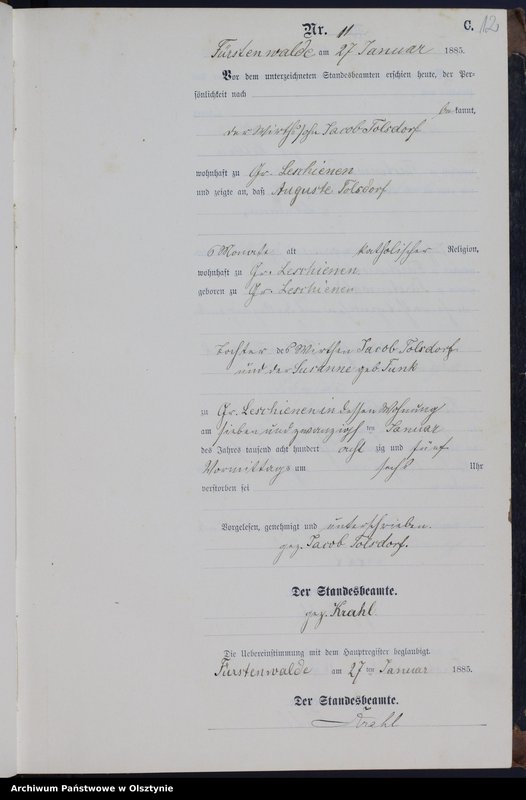 C. 12
Nr. 11
Fürstenwalde am 27 Januar 1885.
Vor dem unterzeichneten Standesbeamten erschien heute, der Per-
sönlichkeit nach
bekannt,
der Wirthssohn Jacob Tolsdorf
wohnhaft zu Gr. Leschienen
und zeigte an, daß Auguste Tolsdorf
6 Monate alt katholischer Religion,
wohnhaft zu Gr. Leschienen
geboren zu Gr. Leschienen
Tochter des Wirthen Jacob Tolsdorf
und der Susanne geb. Funk
zu Gr. Leschienen in dessen Wohnung
am sieben und zwanzigsten Januar
des Jahres tausend acht hundert acht zig und fünf
Vormittags um sechs Uhr
verstorben sei
Vorgelesen, genehmigt und unterschrieben.
gez. Jacob Tolsdorf.
Der Standesbeamte.
gez. Krahl
Die Uebereinstimmung mit dem Hauptregister beglaubigt.
Fürstenwalde am 27 ten Januar 1885.
Der Standesbeamte.
Krahl
Archiwum Państwowe w Olsztynie